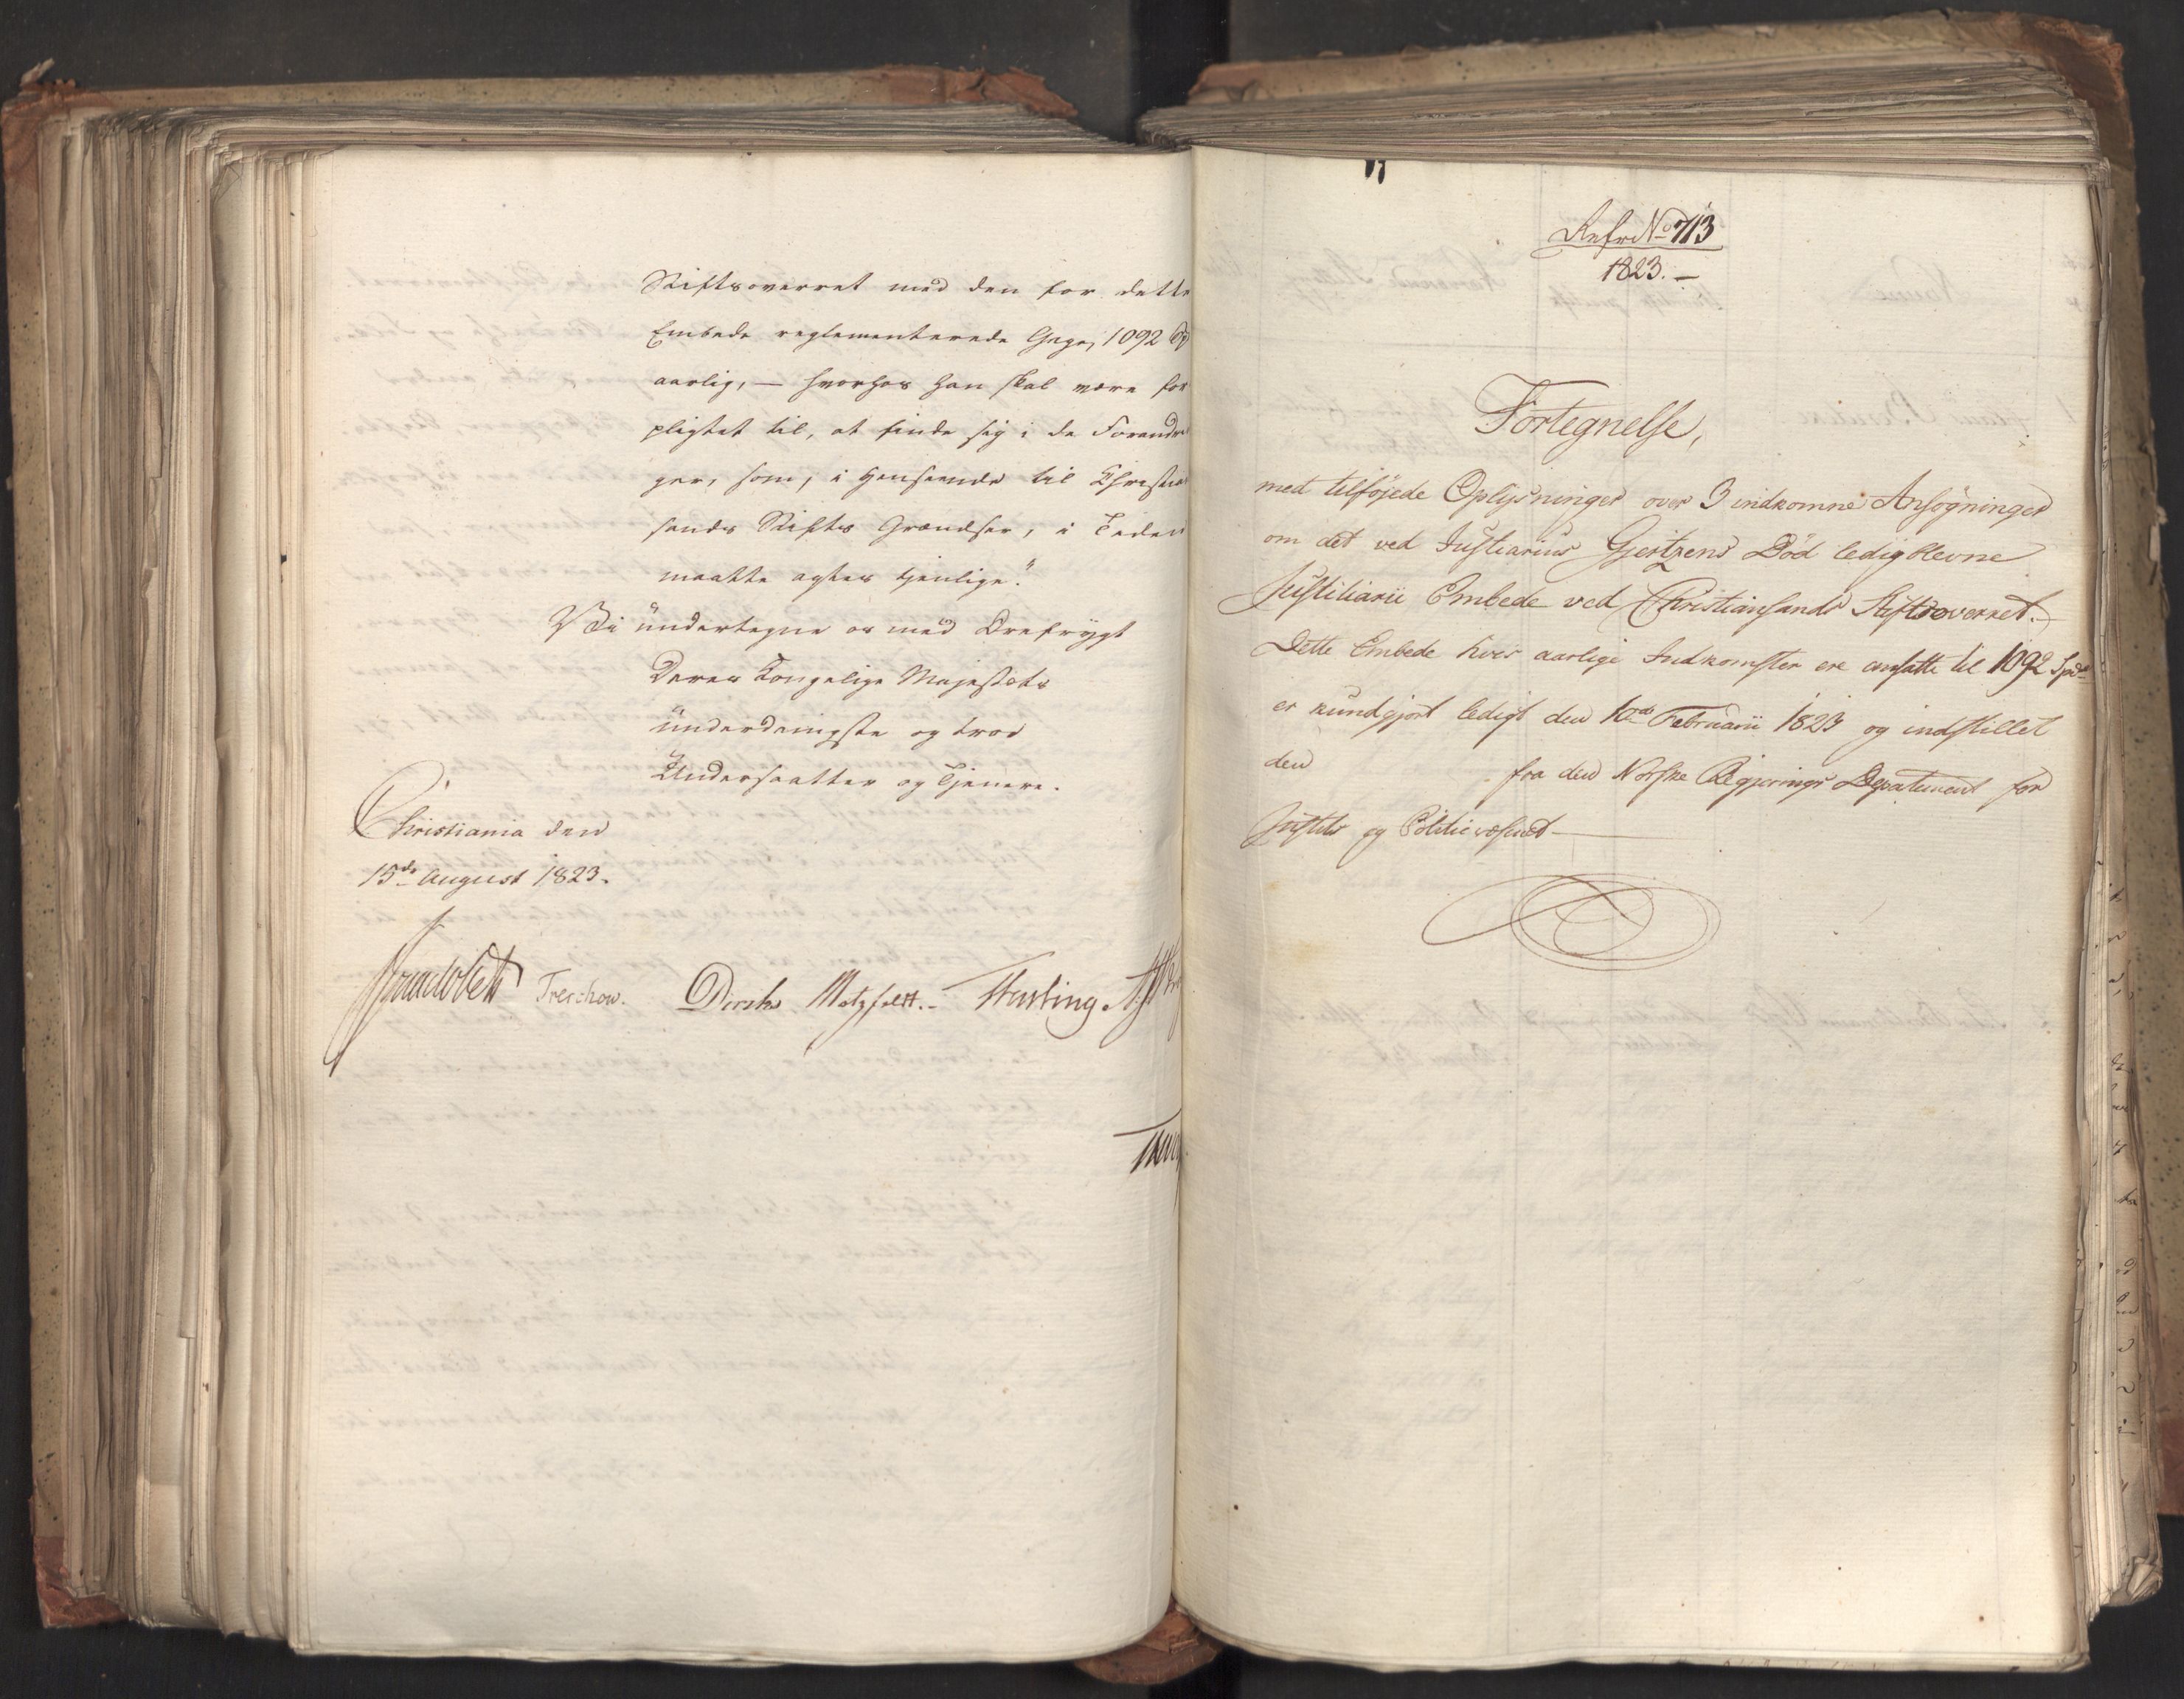 Stiftsoverret med den for dette
Embede reglementerede Gage, 1092 Sp
aarlig, — hvorhos han skal være for
pligtet til, at finde sig i de Forandrin
ger, som, i Henseende til Christian
sands Stifts Grændser, i Tiden
maatte agtes tjenlige."
Vi undertegne os med Ærefrygt
Deres Kongelige Majestæts
underdanigste og troe
Undersaatter og Tjenere.
Christiania den
15de August 1823.
Treschow. Diriks Motzfeldt.
Refr No 713
1823. —
Fortegnelse,
med tilföjede Oplysninger over 3 indkomne Ansögninger
om det ved Justiarius Gjertzens Död ledigblevne
Justitiarii Embede ved Christiansands Stiftsoverret. —
Dette Embede hvis aarlige Indkomster ere ansatte til 1092 Spd
er kundgjort ledigt den Februarii 1823 og indstillet
den fra den Norske Regjerings Departement for
Justits og Politievæsenet —